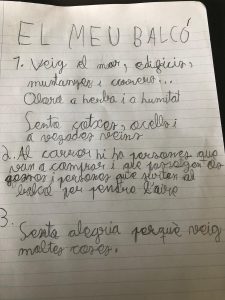 EL MEU BALCÓ
1. Veig el mar, edificis,
muntanyes i carrers...
Olora a herba i a humitat
Sento cotxes, ocells i
vegades veïns
2. Al carrer hi ha persones que
van a comprar i que passegen els
gossos i persones que surten al
balcó per pendre l'aire
3.
Sento alegria perquè veig
moltes coses.